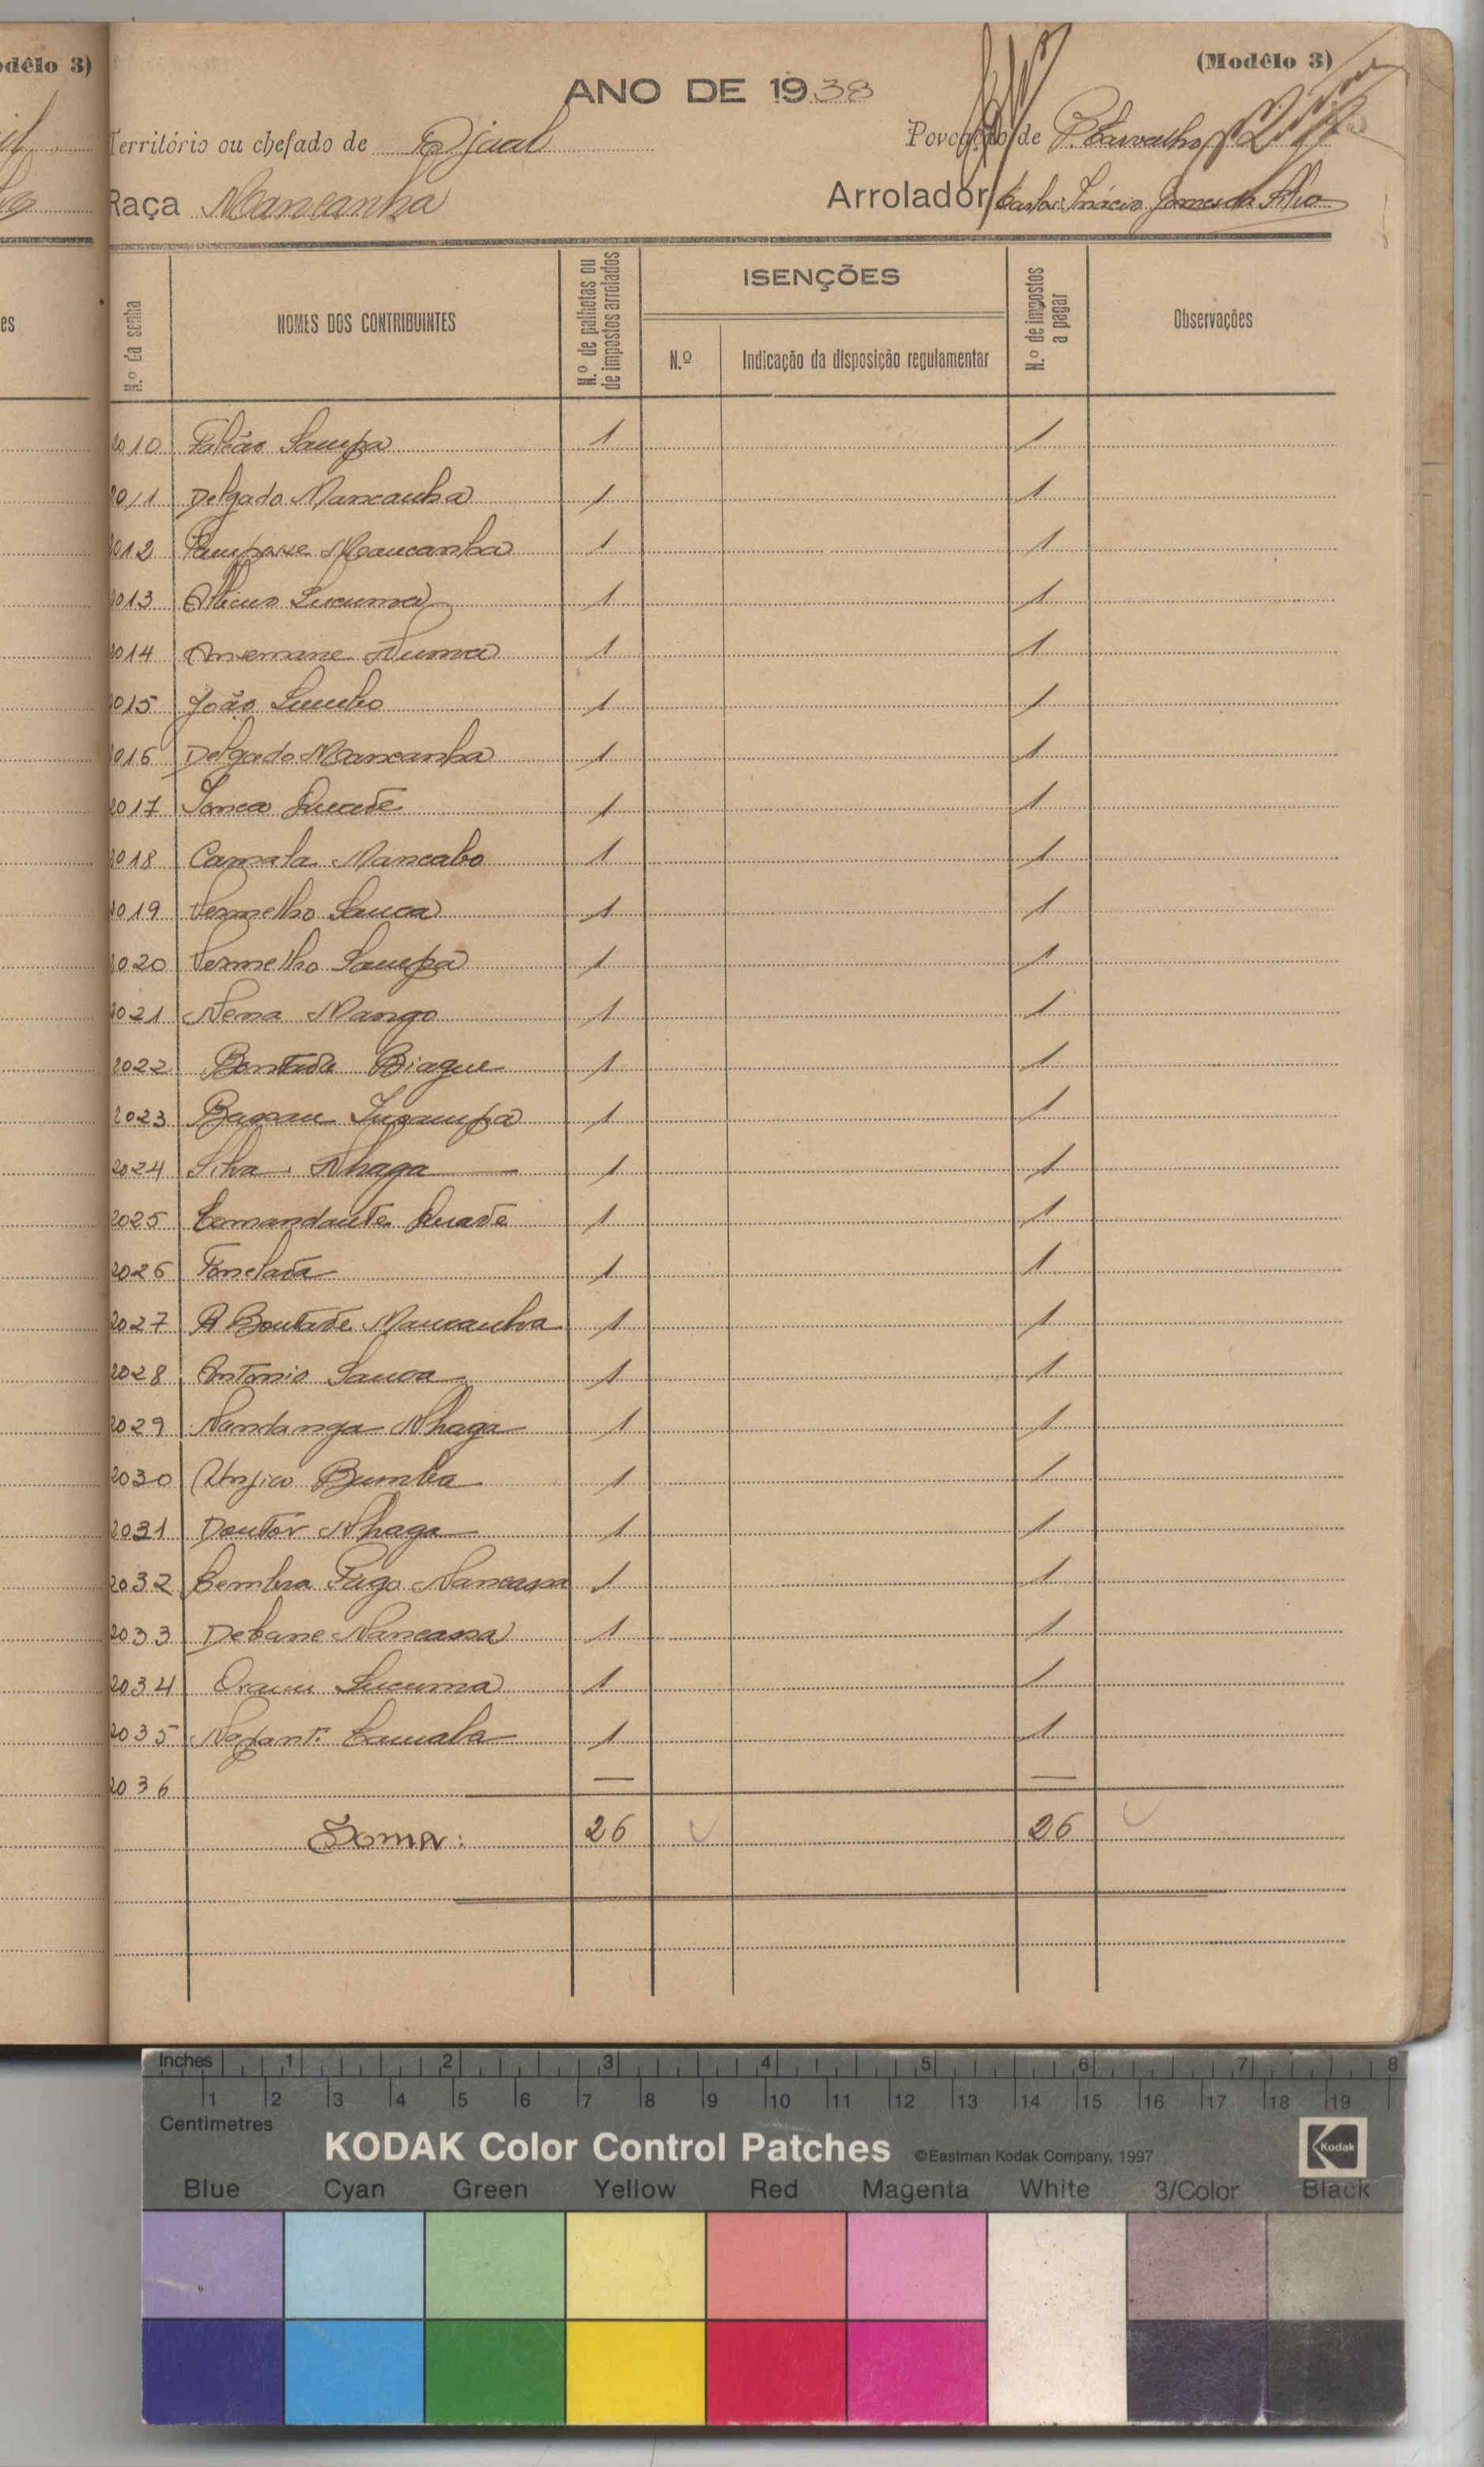 odêlo 3)
(Modêlo 3)
ANO DE 1938
Território ou chefado de Djaal
Povoação de P. Carvalho
Raça Mancanha
Arrolador Carlos Inácio Gomes da Silva
es
N.º da senha
NOMES DOS CONTRIBUINTES
N.º de palhotas ou de impostos arrolados
ISENÇÕES
N.º
Indicação da disposição regulamentar
N.º de impostos a pagar
Observações
2010 Sampa 1 1
2011 Delgado Mancanha 1 1
2012 Mancanha 1 1
2013 Sucuma 1 1
2014 Numa 1 1
2015 João 1 1
2016 Delgado Mancanha 1 1
2017 1 1
2018 Camala Mancabo 1 1
2019 Vermelho Sanca 1 1
2020 Vermelho Sampa 1 1
2021 Nena Mango 1 1
2022 Bontade Biague 1 1
2023 1 1
2024 Silva Nhaga 1 1
2025 Comandante Quade 1 1
2026 Tonelada 1 1
2027 Bontade Mancanha 1 1
2028 Antonio Sanca 1 1
2029 Nandanga Nhaga 1 1
2030 Bumba 1 1
2031 Doutor Nhaga 1 1
2032 Lembra Pago Nancassa 1 1
2033 Debane Nancassa 1 1
2034 Sucuma 1 1
2035 Camala 1 1
2036 — —
Soma: 26 26
Inches 1 2 3 4 5 6 7 8
1 2 3 4 5 6 7 8 9 10 11 12 13 14 15 16 17 18 19
Centimetres
KODAK Color Control Patches ©Eastman Kodak Company, 1997
Kodak
Blue Cyan Green Yellow Red Magenta White 3/Color Black